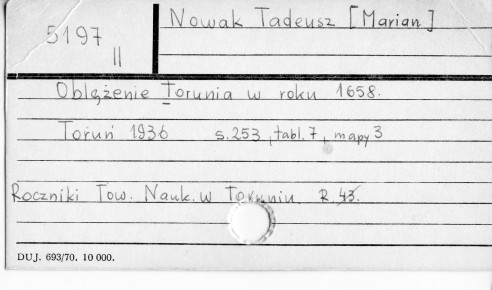 5197
II
Nowak Tadeusz [Marian]
Oblężenie Torunia w roku 1658.
Toruń 1936 s.253, tabl.7, mapy 3
Roczniki Tow. Nauk. w Toruniu. R. 43.
DUJ. 693/70. 10 000.